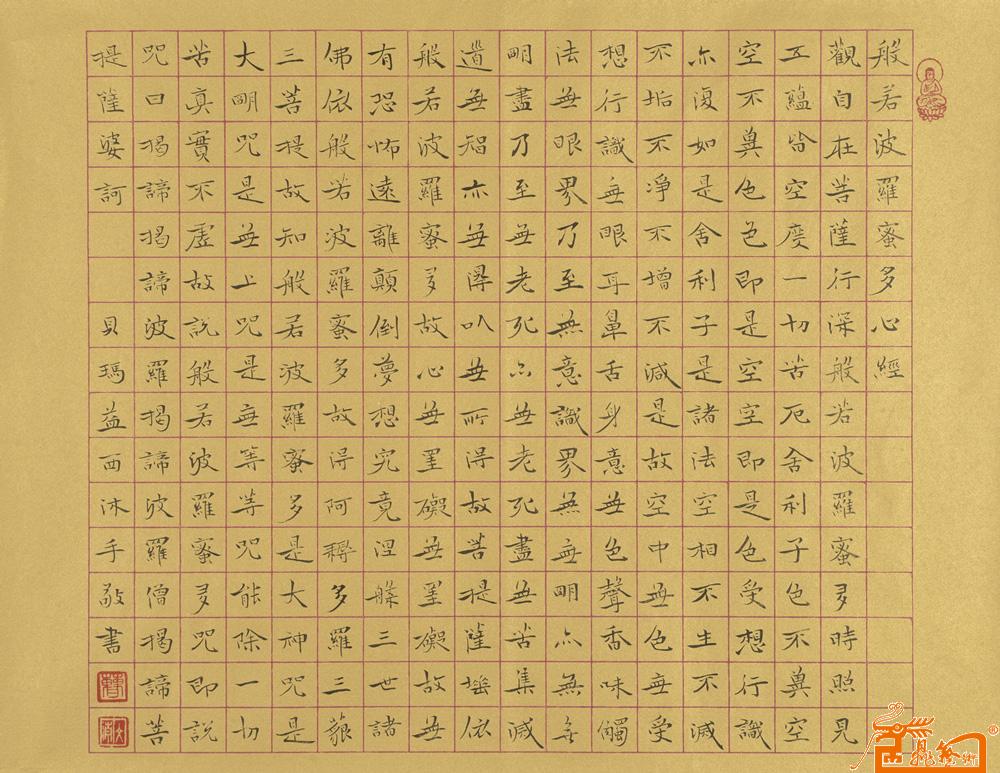 般若波羅蜜多心經
觀自在菩薩行深般若波羅蜜多時照見
五蘊皆空度一切苦厄舍利子色不異空
空不異色色即是空空即是色受想行識
亦復如是舍利子是諸法空相不生不滅
不垢不淨不增不減是故空中無色無受
想行識無眼耳鼻舌身意無色聲香味觸
法無眼界乃至無意識界無無明亦無無
明盡乃至無老死亦無老死盡無苦集滅
道無智亦無得以無所得故菩提薩埵依
般若波羅蜜多故心無罣礙無罣礙故無
有恐怖遠離顛倒夢想究竟涅槃三世諸
佛依般若波羅蜜多故得阿耨多羅三藐
三菩提故知般若波羅蜜多是大神咒是
大明咒是無上咒是無等等咒能除一切
苦真實不虛故說般若波羅蜜多咒即說
咒曰揭諦揭諦波羅揭諦波羅僧揭諦菩
提薩婆訶 貝瑪益西沐手敬書